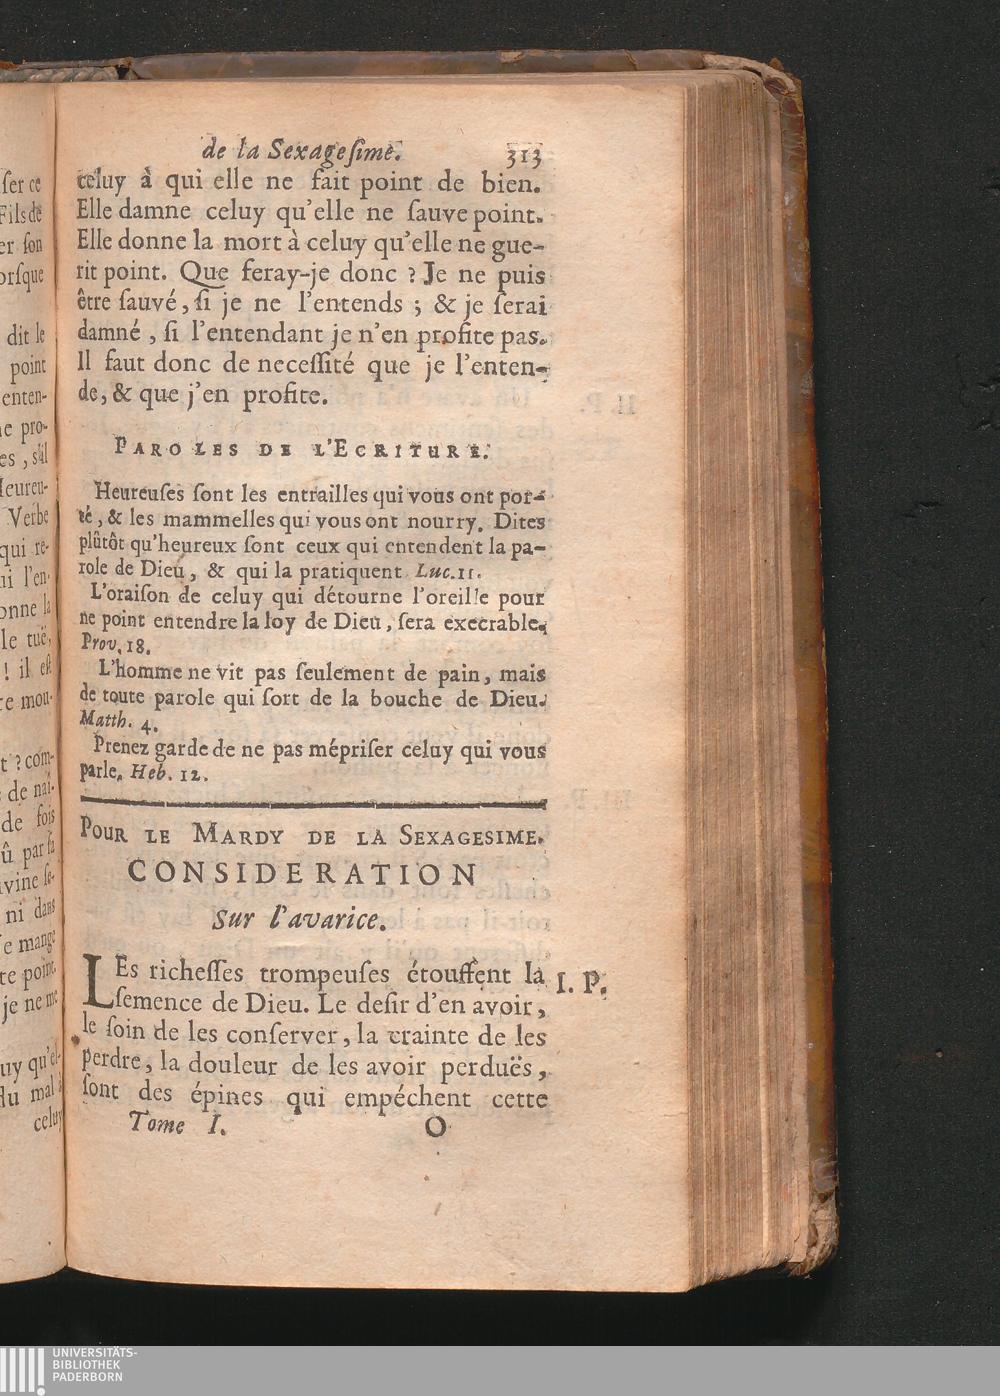 de la Sexageſime. 313
celuy à qui elle ne fait point de bien.
Elle damne celuy qu'elle ne ſauve point.
Elle donne la mort à celuy qu'elle ne gue-
rit point. Que feray-je donc ? Je ne puis
être ſauvé, ſi je ne l'entends ; & je ſerai
damné, ſi l'entendant je n'en profite pas.
Il faut donc de neceſſité que je l'enten-
de, & que j'en profite.
PAROLES DE L'ECRITURE.
Heureuſes ſont les entrailles qui vous ont por-
té, & les mammelles qui vous ont nourry. Dites
plûtôt qu'heureux ſont ceux qui entendent la pa-
role de Dieu, & qui la pratiquent Luc. 11.
L'oraiſon de celuy qui détourne l'oreille pour
ne point entendre la loy de Dieu, ſera execrable.
Prov. 18.
L'homme ne vit pas ſeulement de pain, mais
de toute parole qui ſort de la bouche de Dieu.
Matth. 4.
Prenez garde de ne pas mépriſer celuy qui vous
parle. Heb. 12.
POUR LE MARDY DE LA SEXAGESIME.
CONSIDERATION
Sur l'avarice.
LEs richeſſes trompeuſes étouffent la I. P.
ſemence de Dieu. Le deſir d'en avoir,
le ſoin de les conſerver, la crainte de les
perdre, la douleur de les avoir perduës,
ſont des épines qui empéchent cette
Tome I. O
ſer ce
Fils de
er ſon
orſque
dit le
point
enten-
ne pro-
es, s'il
Heureu-
Verbe
qui re-
ui l'en-
onne la
le tuë,
! il eſt
re mou-
t ? com-
de naî-
de fois
û par ſa
vine ſe-
ni dans
e mange
te point,
je ne me
uy qu'el-
du mal à
celuy
UNIVERSITÄTS-
BIBLIOTHEK
PADERBORN